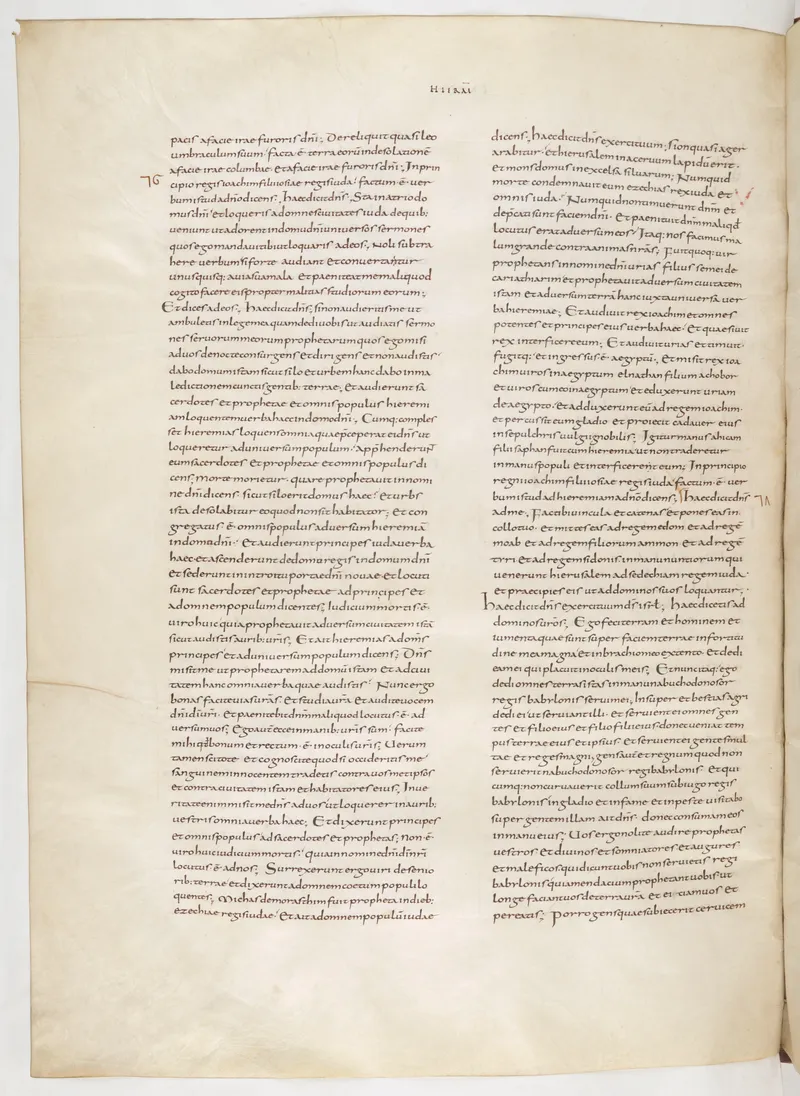 HIEREM
pacis afacie irae furoris dñi; Dereliquit quasi leo
umbraculum suum. facta ē terra eorū indesolationē
afacie irae columbae. et afacie irae furoris dñi; Inprin
cipio regis ioachim filii iosiae regis iuda. factum ē uer
bum istud adño dicens; Haec dicit dñs; Sta in atrio do
mus dñi et loqueris ad omnes ciuitates iuda de quib;
ueniunt ut adorent indomu dñi uniuersos sermones
quos ego mandaui tibi ut loquaris ad eos; Noli subtra
here uerbum si forte audiant et conuertantur
unusquisq; a uia sua mala. Et paeniteat me mali quod
cogito facere eis propter malitias studiorum eorum;
Et dices ad eos; Haec dicit dñs; Si non audieritis me ut
ambuletis in lege mea quam dedi uobis ut audiatis sermo
nes seruorum meorum prophetarum quos ego misi
ad uos de nocte consurgens et dirigens et non audistis.
dabo domum istam sicut silo et urbem hanc dabo inma
ledictionem cunctis gentib; terrae; Et audierunt sa
cerdotes et prophetae et omnis populus hieremi
am loquentem uerba haec in domo dñi; Cumq; comples
set hieremias loquens omnia quae p̄ceperat ei dñs ut
loqueretur ad uniuersum populum. Apprehenderunt
eum sacerdotes et prophetae et omnis populus di
cens; morte morietur. quare prophetauit in nomi
ne dñi dicens; sicut silo erit domus haec. et urbs
ista desolabitur eo quod non sit habitator; et con
gregatus ē omnis populus aduersum hieremiā
in domo dñi. Et audierunt principes iuda uerba
haec. et ascenderunt de domo regis in domum dñi
et sederunt in introitu portae dñi nouae. et locuti
sunt sacerdotes et prophetae ad principes et
ad omnem populum dicentes; Iudicium mortis ē
uiro huic quia prophetauit aduersum ciuitatem istā
sicut audistis aurib; urīs; Et ait hieremias ad omīs
principes et ad uniuersum populum dicens; Dñs
misit me ut prophetarem ad domū istam et ad ciui
tatem hanc omnia uerba quae audistis. Nunc ergo
bonas facite uias urās et studia urā. Et audite uocem
dñi di uri. Et paenitebit dñm mali quod locutus ē ad
uersum uos; Ego autē ecce in manib; uris sum. facite
mihi quod bonum et rectum ē in oculis uris; Uerum
tamen scitote. et cognoscite quod si occideritis me.
sanguinem innocentem tradetis contra uosmetipsos
et contra ciuitatem istam et habitatores eius; In ue
ritate enim misit me dñs ad uos ut loquerer in aurib;
uestris omnia uerba haec; Et dixerunt principes
et omnis populus ad sacerdotes et prophetas; non ē
uiro huic iudicium mortis. quia in nomine dñi di nri
locutus ē ad nos; Surrexerunt ergo uiri de senio
rib; terrae et dixerunt ad omnem coetum populi lo
quentes; Michas de morasthim fuit propheta in dieb;
ezechiae regis iudae. et ait ad omnem populū iudae
dicens; Haec dicit dñs exercituum; Sion quasi ager
arabitur. et hierusalem in aceruum lapidū erit.
et mons domus in excelsa siluarum; Numquid
morte condemnauit eum ezechias rex iuda et
omnis iuda. Numquid non timuerunt dñm et
depcati sunt faciem dñi. et paenituit dñm mali qd
locutus erat aduersum eos. Itaq; nos facimus ma
lum grande contra animas nrās; Fuit quoq; uir
prophetans in nomine dñi urias filius semei de
cariathiarim et prophetauit aduersum ciuitatem
istam et aduersum terrā hanc iuxta uniuersa uer
ba hieremiae; Et audiuit rex ioachim et omnes
potentes et principes eius uerba haec. et quaesiuit
rex interficere eum; Et audiuit urias et timuit.
fugitq; et ingressus ē aegyptū; et misit rex ioa
chim uiros in aegyptum elnathan filium achobor
et uiros cum eo in aegyptum et eduxerunt uriam
de aegypto. et adduxerunt eū ad regem ioachim.
et percussit eum gladio et proiecit cadauer eius
in sepulchris uulgi ignobilis; Igitur manus ahicam
filii saphan fuit cum hieremia ut non traderetur
in manus populi et interficerent eum; In principio
regni ioachim filii iosiae regis iuda factum ē uer
bum istud ad hieremiam a dño dicens; Haec dicit dñs
ad me; Fac tibi uincula et catenas et pones eas in
collo tuo. et mittes eas ad regem edom et ad regē
moab et ad regem filiorum ammon et ad regē
tyri et ad regem sidonis in manu nuntiorum qui
uenerunt hierusalem ad sedechiam regem iuda.
et praecipies eis ut ad dominos suos loquantur;
Haec dicit dñs exercituum ds isrl; Haec dicetis ad
dominos urōs; Ego feci terram et hominem et
iumenta quae sunt super faciem terrae in fortitu
dine mea magna et in brachio meo extento. et dedi
eam ei qui placuit in oculis meis; Et nunc itaq; ego
dedi omnes terras istas in manu nabuchodonosor
regis babylonis serui mei; Insuper et bestias agri
dedi ei ut seruiant illi. et seruient ei omnes gen
tes et filio eius et filio filii eius donec ueniat tem
pus terrae eius et ipsius et seruient ei gentes mul
tae et reges magni; gens autē et regnum quod non
seruierit nabuchodonosor regi babylonis et qui
cumq; non curuauerit collum suum sub iugo regis
babylonis in gladio et in fame et in peste uisitabo
super gentem illam ait dñs. donec consumam eos
in manu eius; Uos ergo nolite audire prophetas
uestros et diuinos et somniatores et augures
et maleficos qui dicunt uobis non seruietis regi
babylonis quia mendacium prophetant uobis ut
longe faciant uos de terra urā et eiciam uos et
pereatis; Porro gens quae subiecerit ceruicem